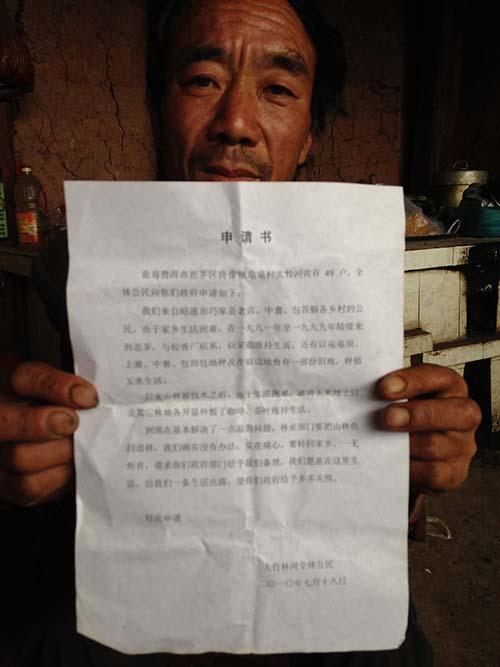 申请书
兹有普洱市思茅区倚像镇竜竜村大竹河共有 49 户，全
体公民向你们政府申请如下。
我们来自昭通市巧家县老店、中寨、包谷脑各乡村的公
民，由于家乡生活困难，在一九九一年至一九九九年陆续来
到思茅，与松香厂联系，以采脂维持生活，还有以竜竜坝、
上寨、中寨、包田包地种及在田边地角有一部份旧地，种植
玉米生活。
后来山林被伐木之后，由于生活困难，就将玉米地上以
及其它林地各开垦种植了咖啡、茶叶维持生活。
到现在基本解决了一点温饱问题，林业部门要把山林收
回造林，我们确实没有办法，实在痛心，要转回家乡，一无
所有，请求你们政府部门给予我们条理，我们愿意在这里生
活，给我们一条生活出路，望你们政府给予多多关照。
特此申请
大竹林河全体公民
二〇一〇年七月十八日